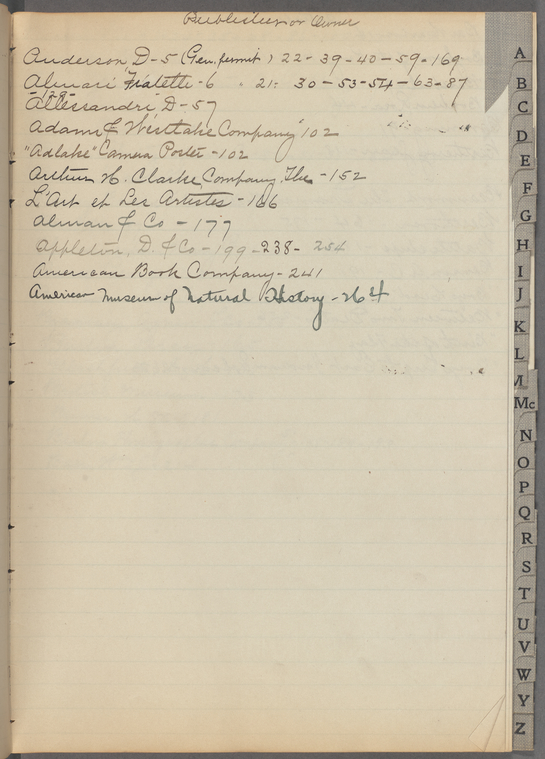 Publisher or Owner
Anderson, D-5 (Gen. permit) 22-39-40-59-169
Alinari Fratelli-6 - 21- 30-53-54-63-87
-129-
Allessandri, D-57
Adams & Westlake Company 102
"Adlake" Camera Poster-102
Arthur H. Clarke Company, The-152
L'Art et Les Artistes-166
Alman & Co-177
Appleton, D. & Co-199-238-254
American Book Company-241
American Museum of Natural History-264
A
B
C
D
E
F
G
H
I
J
K
L
M
Mc
N
O
P
Q
R
S
T
U
V
W
Y
Z